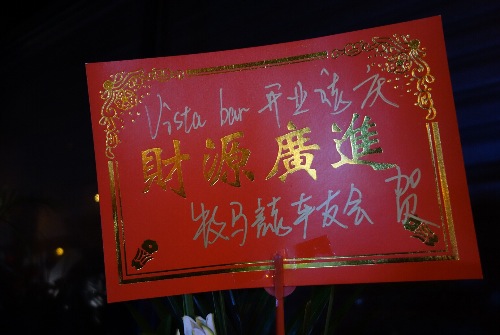 Vista bar 开业誌庆
財源廣進
牧马誌车友会 贺